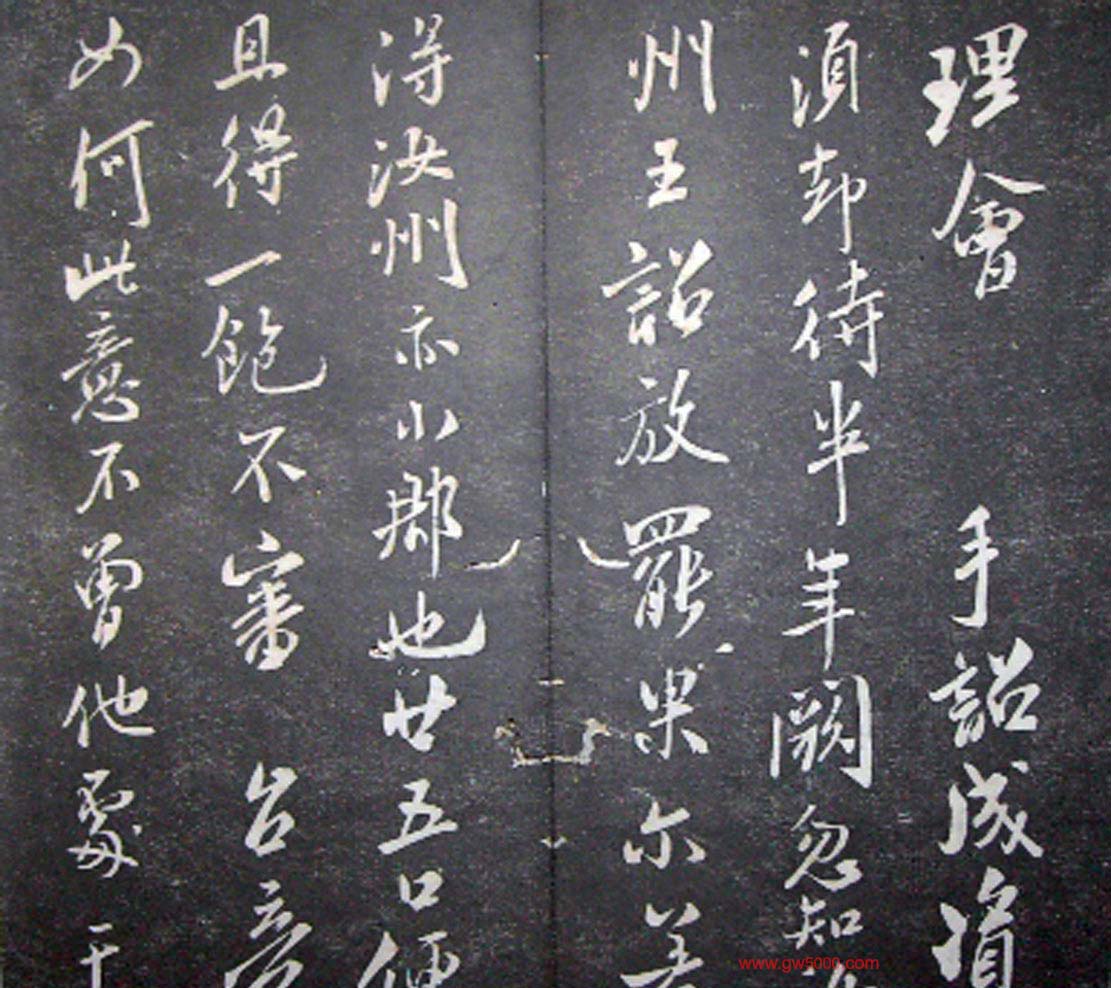 理會 手詔成資
須却待半年闕忽知
州王詔放罷果尔若
得汝州亦小郡也廿五口便
且得一飽不審 台意
如何此意不曾他處干
www.gw5000.com